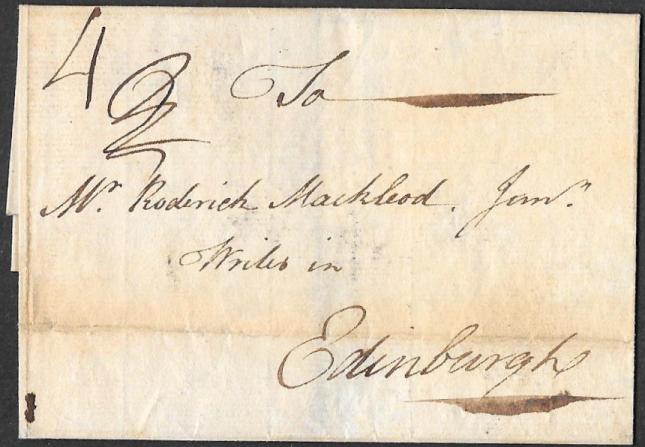 4
To
Mr. Roderick Mackleod. Junr.
Writer in
Edinburgh